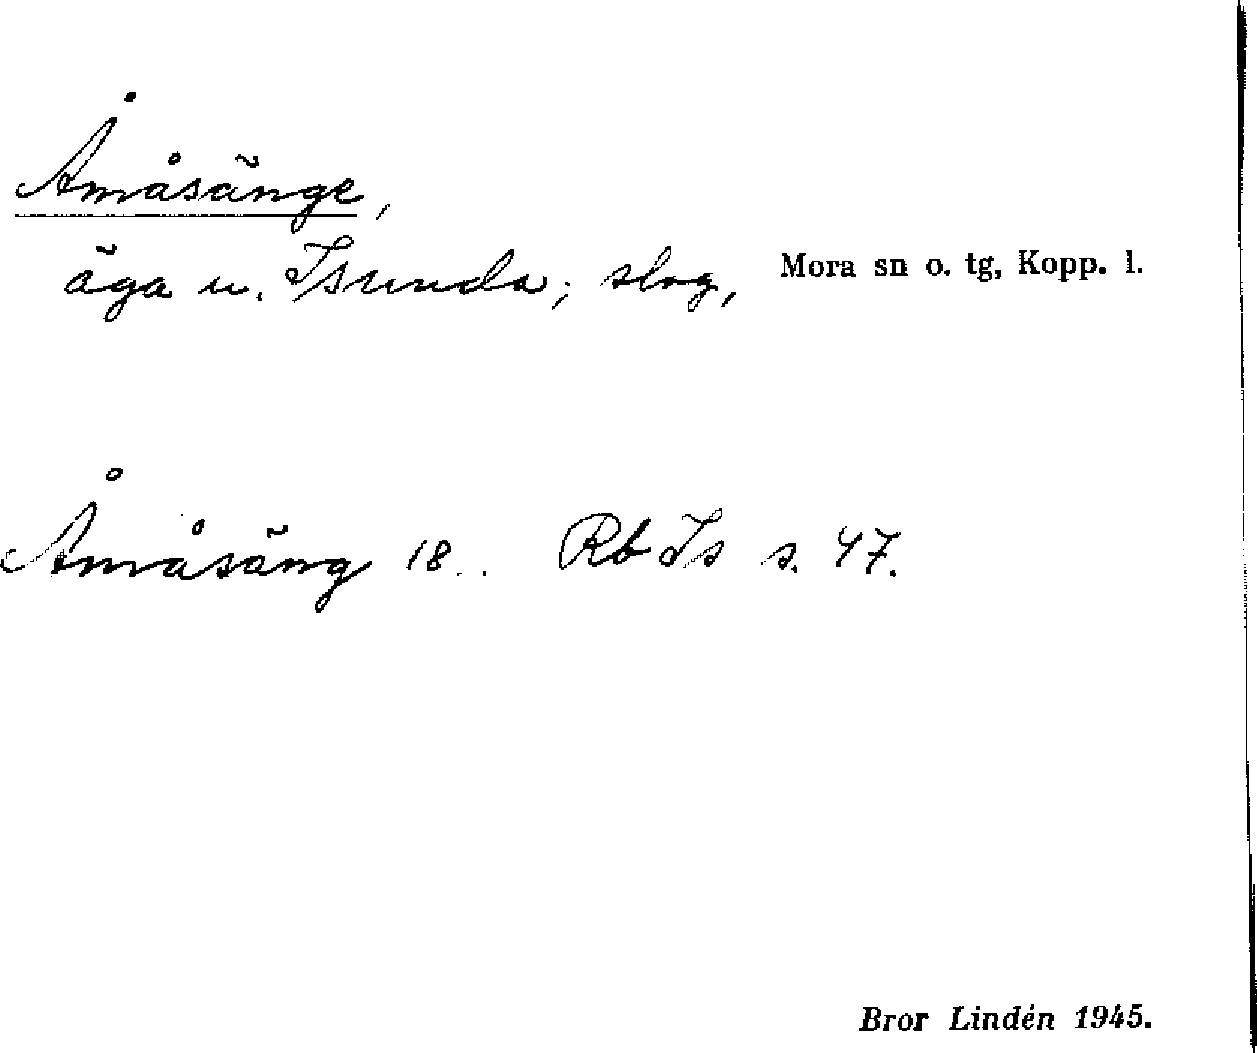 Åmåsänge,
äga u. Isunda; slog, Mora sn o. tg, Kopp. l.
Åmåsäng 18.. Rb Is s. 47.
Bror Lindén 1945.